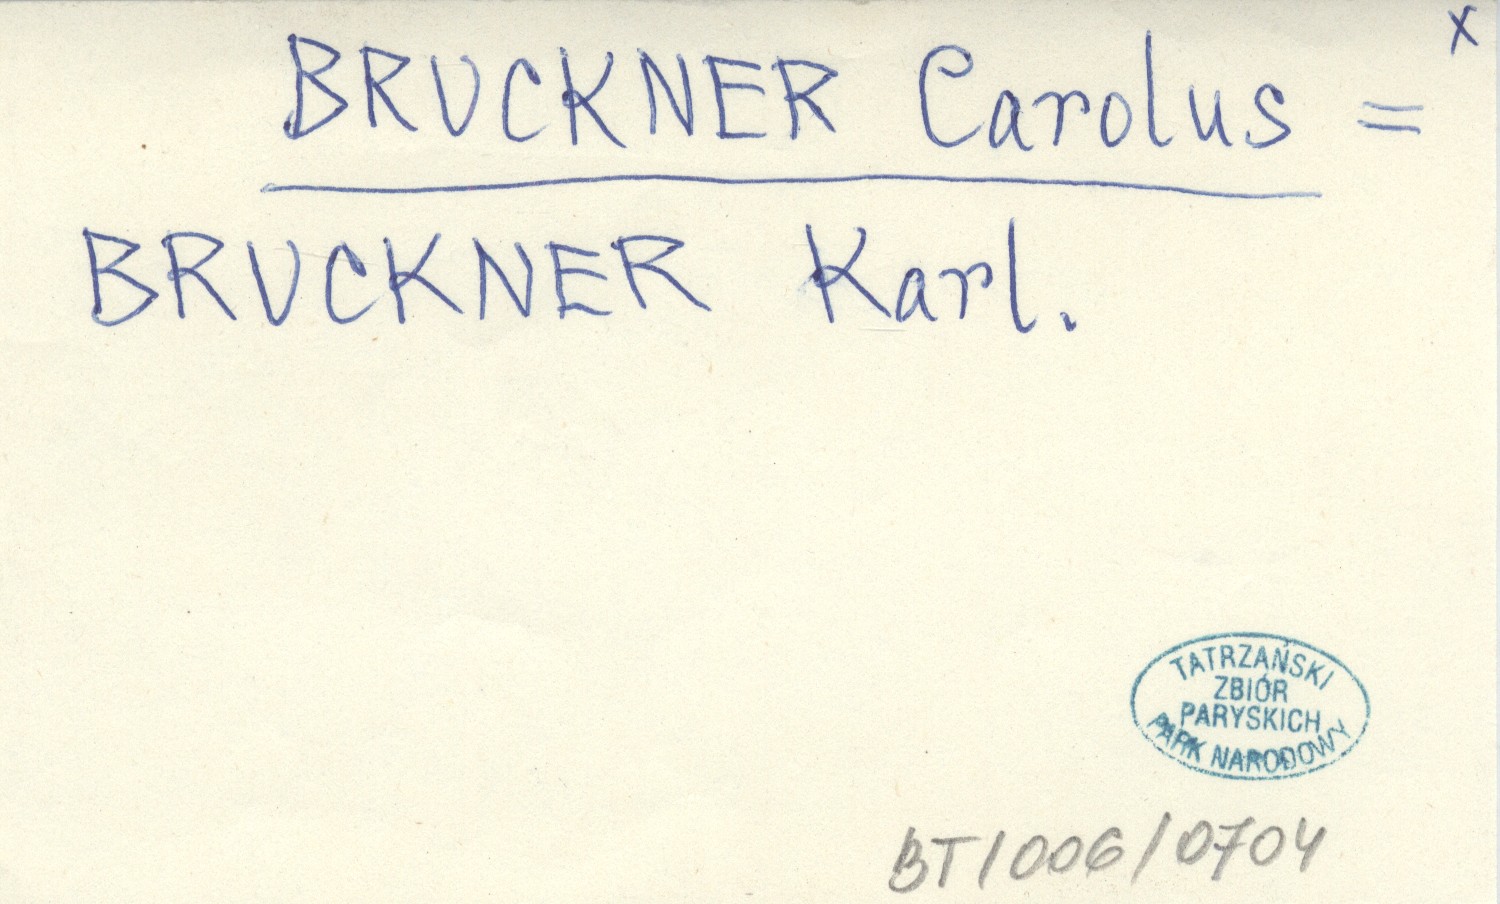 x
BRUCKNER Carolus =
BRUCKNER Karl.
TATRZAŃSKI
ZBIÓR
PARYSKICH
PARK NARODOWY
BT/006/0704